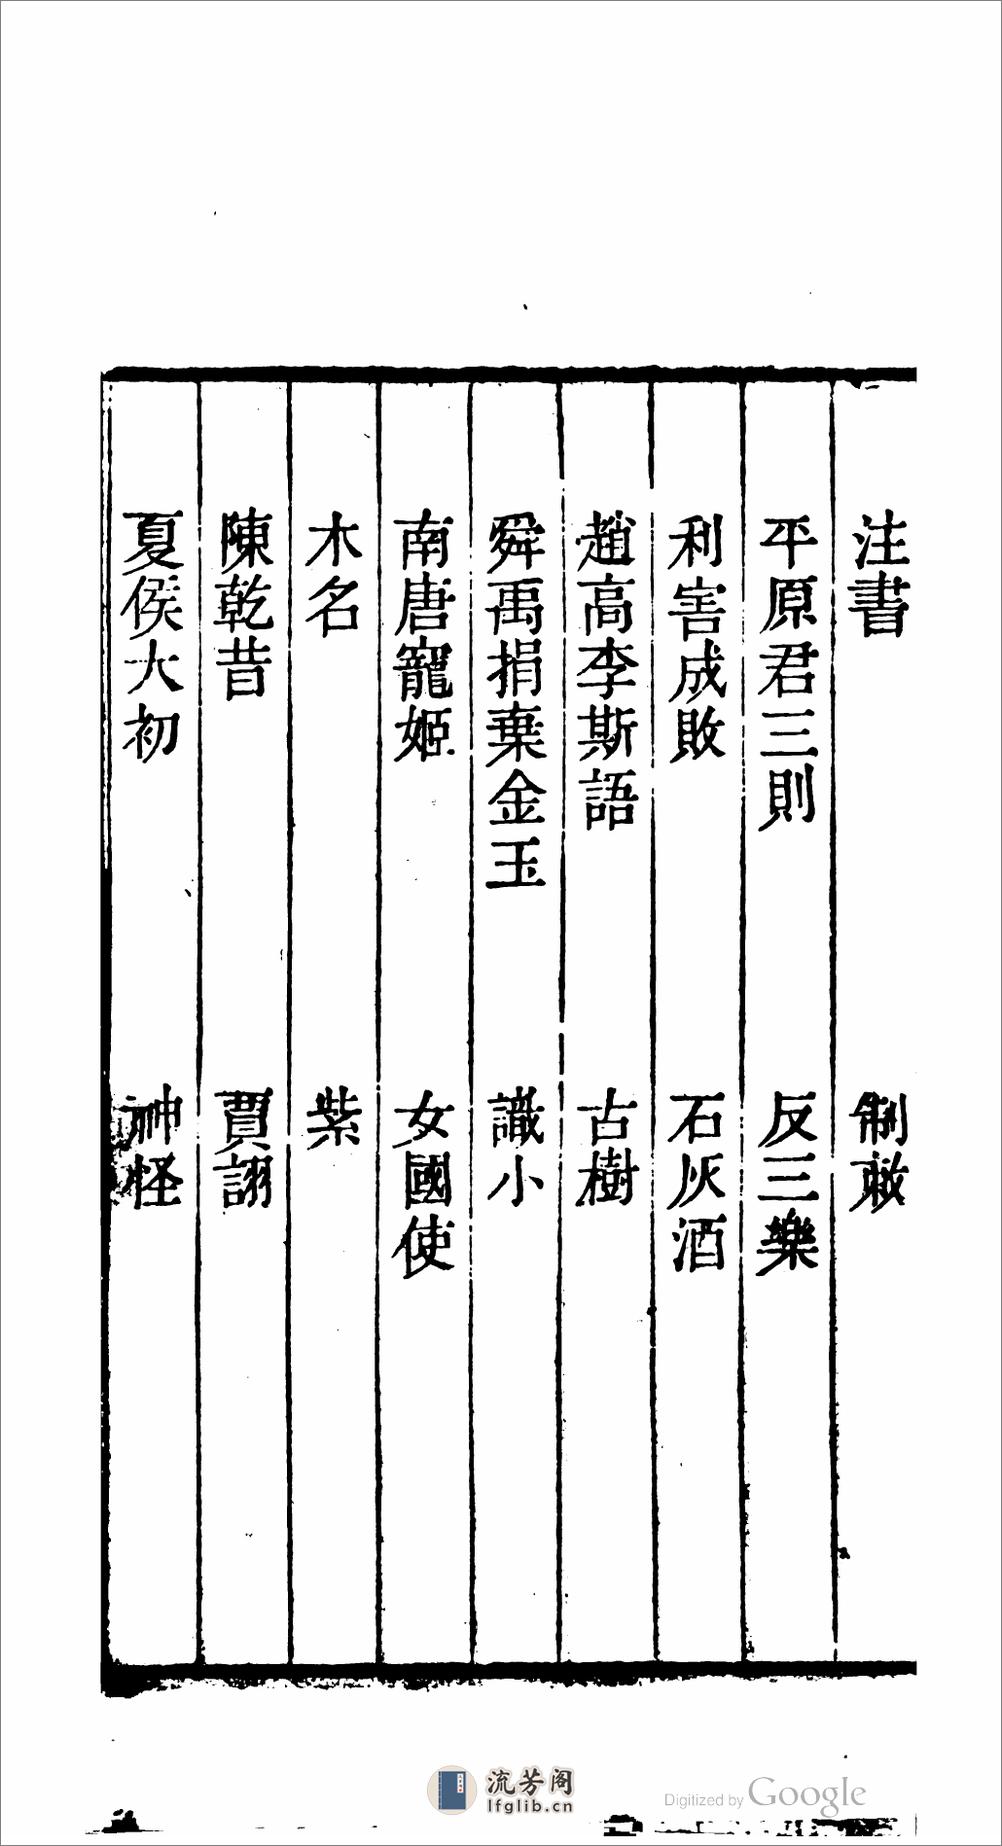 注書 制敕
平原君三則 反三樂
利害成敗 石灰酒
趙高李斯語 古樹
舜禹捐棄金玉 識小
南唐寵姬 女國使
木名 紫
陳乾昔 賈詡
夏侯太初 神怪
流芳阁
lfglib.cn
Digitized by Google